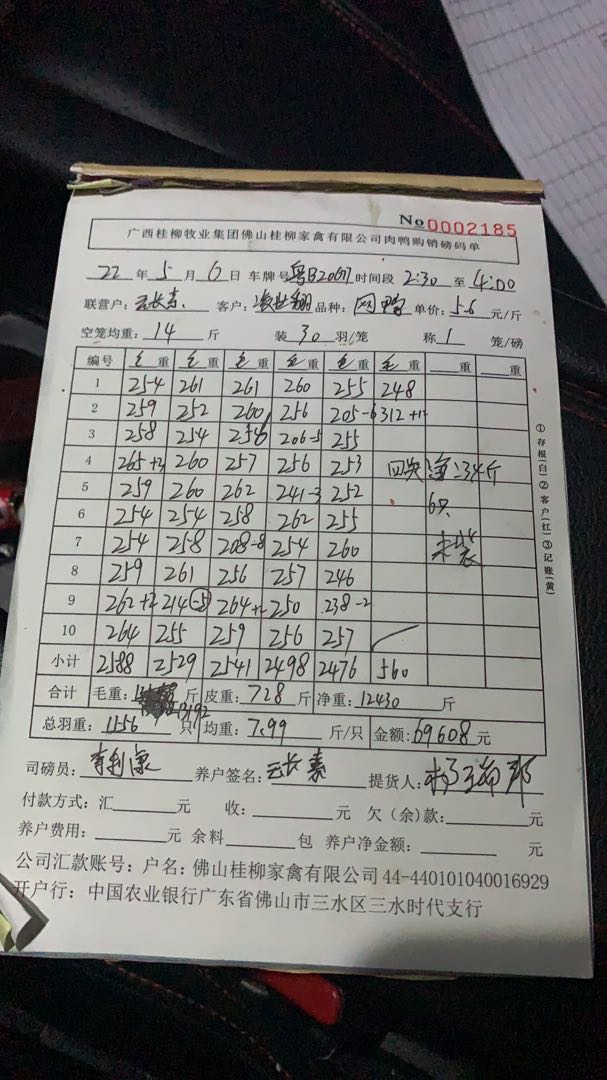 No 0002185
广西桂柳牧业集团佛山桂柳家禽有限公司肉鸭购销磅码单
22年5月6日 车牌号 时间段 2:30 至 4:00
联营户: 客户: 品种: 单价: 5.6 元/斤
空笼均重: 14 斤 装 30 羽/笼 称 1 笼/磅
编号 毛重 毛重 毛重 毛重 毛重 毛重 重 重
1 254 261 261 260 255 248
2 259 252 260 256 205-6 312+12
3 258 254 256 206-5 255
4 265+3 260 257 256 253 净234斤
5 259 260 262 241-3 252 6只
6 254 254 258 262 255
7 254 258 208-8 254 260 未装
8 259 261 256 257 246
9 262+2 214-5 264+2 250 238-2
10 264 255 259 256 257
小计 2588 2529 2541 2498 2476 560
合计 毛重: 13192 斤 皮重: 728 斤 净重: 12430 斤
总羽重: 1556 只 均重: 7.99 斤/只 金额: 69608 元
司磅员: 养户签名: 提货人:
付款方式: 汇 元 收: 元 欠(余)款: 元
养户费用: 元 余料 包 养户净金额: 元
公司汇款账号: 户名: 佛山桂柳家禽有限公司 44-440101040016929
开户行: 中国农业银行广东省佛山市三水区三水时代支行
①存根(白)②客户(红)③记账(黄)